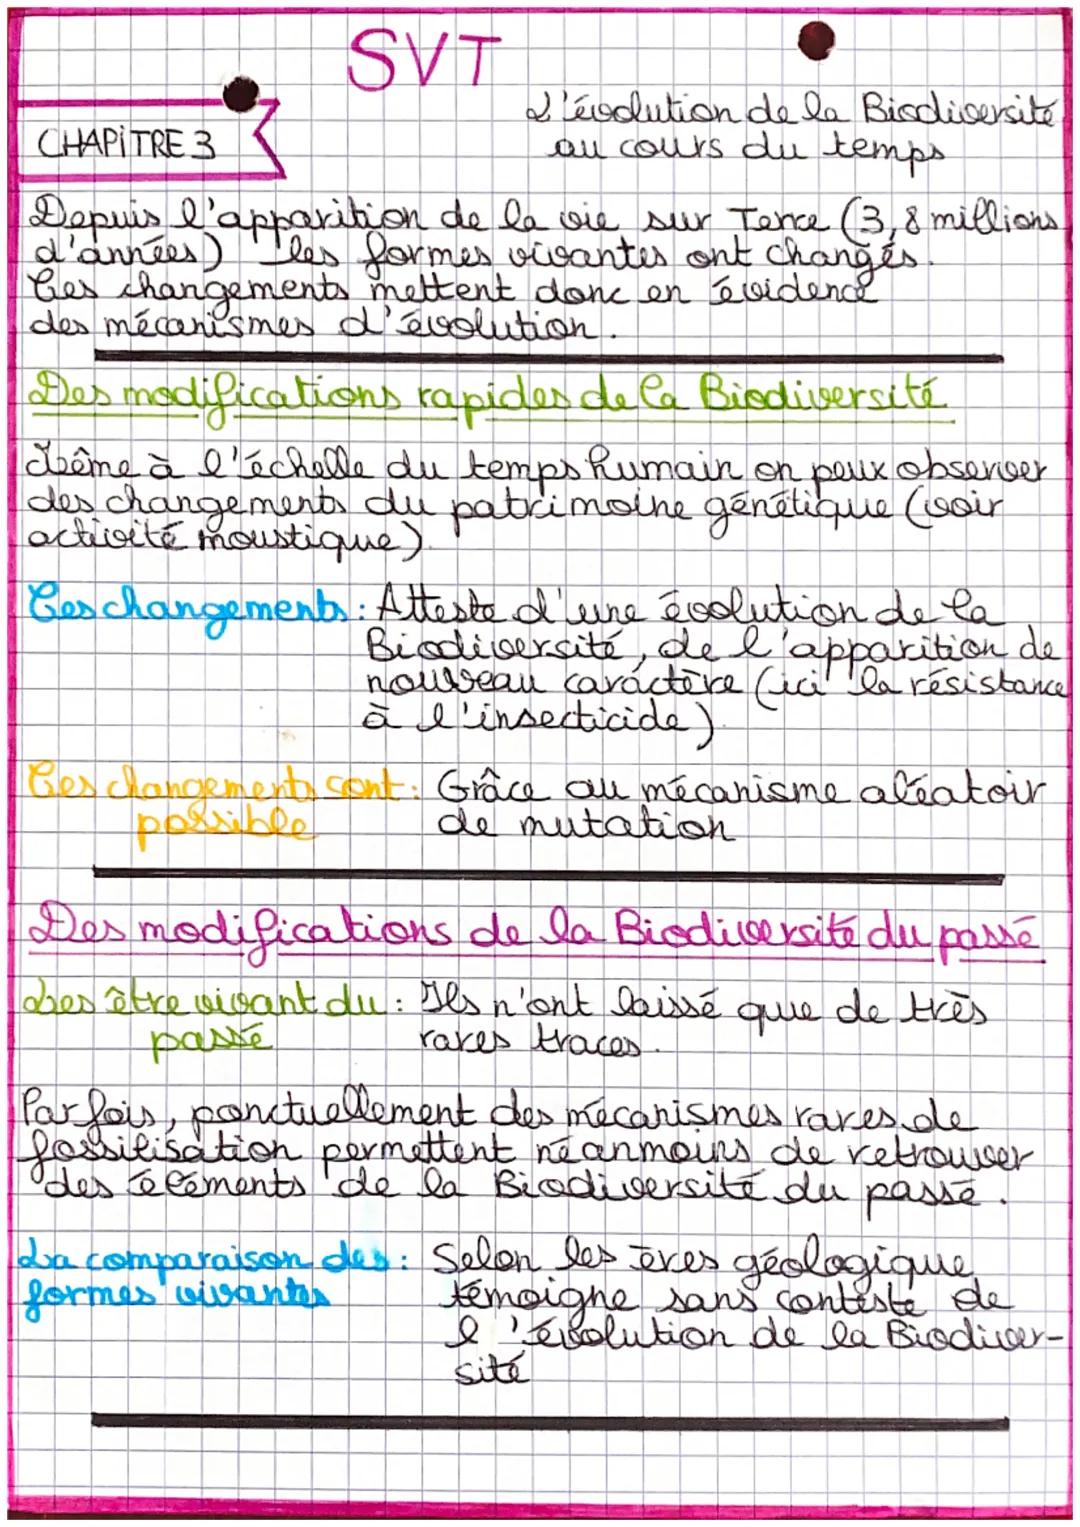 SVT
CHAPITRE 3
L'évolution de la Biodiversité
au cours du temps
Depuis l'apparition de la vie sur Terre (3,8 millions
d'années) les formes vivantes ont changés.
Ces changements mettent donc en évidence
des mécanismes d'évolution.
Des modifications rapides de la Biodiversité
Même à l'échelle du temps humain on peux observer
des changements du patrimoine génétique (voir
activité moustique).
Ces changements : Atteste d'une évolution de la
Biodiversité, de l'apparition de
nouveau caractère (ici la résistance
à l'insecticide).
Ces changements sont : Grâce au mécanisme aléatoir
possible de mutation
Des modifications de la Biodiversité du passé
Les être vivant du : Ils n'ont laissé que de très
passé rares traces.
Parfois, ponctuellement des mécanismes rares de
fossilisation permettent néanmoins de retrouver
des éléments de la Biodiversité du passé.
La comparaison des : Selon les ères géologique
formes vivantes témoigne sans conteste de
l'évolution de la Biodiver-
sité